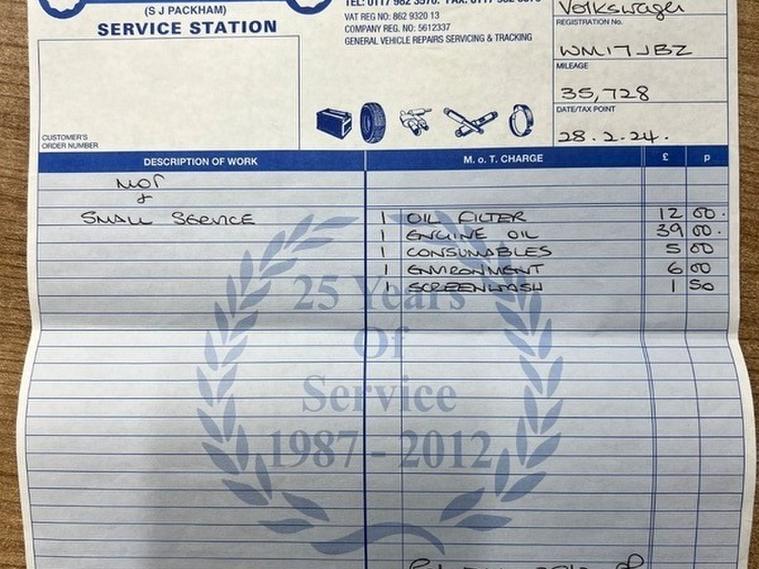 (S J PACKHAM)
SERVICE STATION
VAT REG NO: 862 9320 13
COMPANY REG. NO: 5612337
GENERAL VEHICLE REPAIRS SERVICING & TRACKING
Volkswagen
REGISTRATION No.
WM17JBZ
MILEAGE
35,728
DATE/TAX POINT
28.2.24.
CUSTOMER'S
ORDER NUMBER
DESCRIPTION OF WORK M. o T. CHARGE £ p
MOT
&
SMALL SERVICE 1 OIL FILTER 12 00.
1 ENGINE OIL 39 00.
1 CONSUMABLES 5 00
1 ENVIRONMENT 6 00
1 SCREENWASH 1 50
25 Years
Of
Service
1987 - 2012